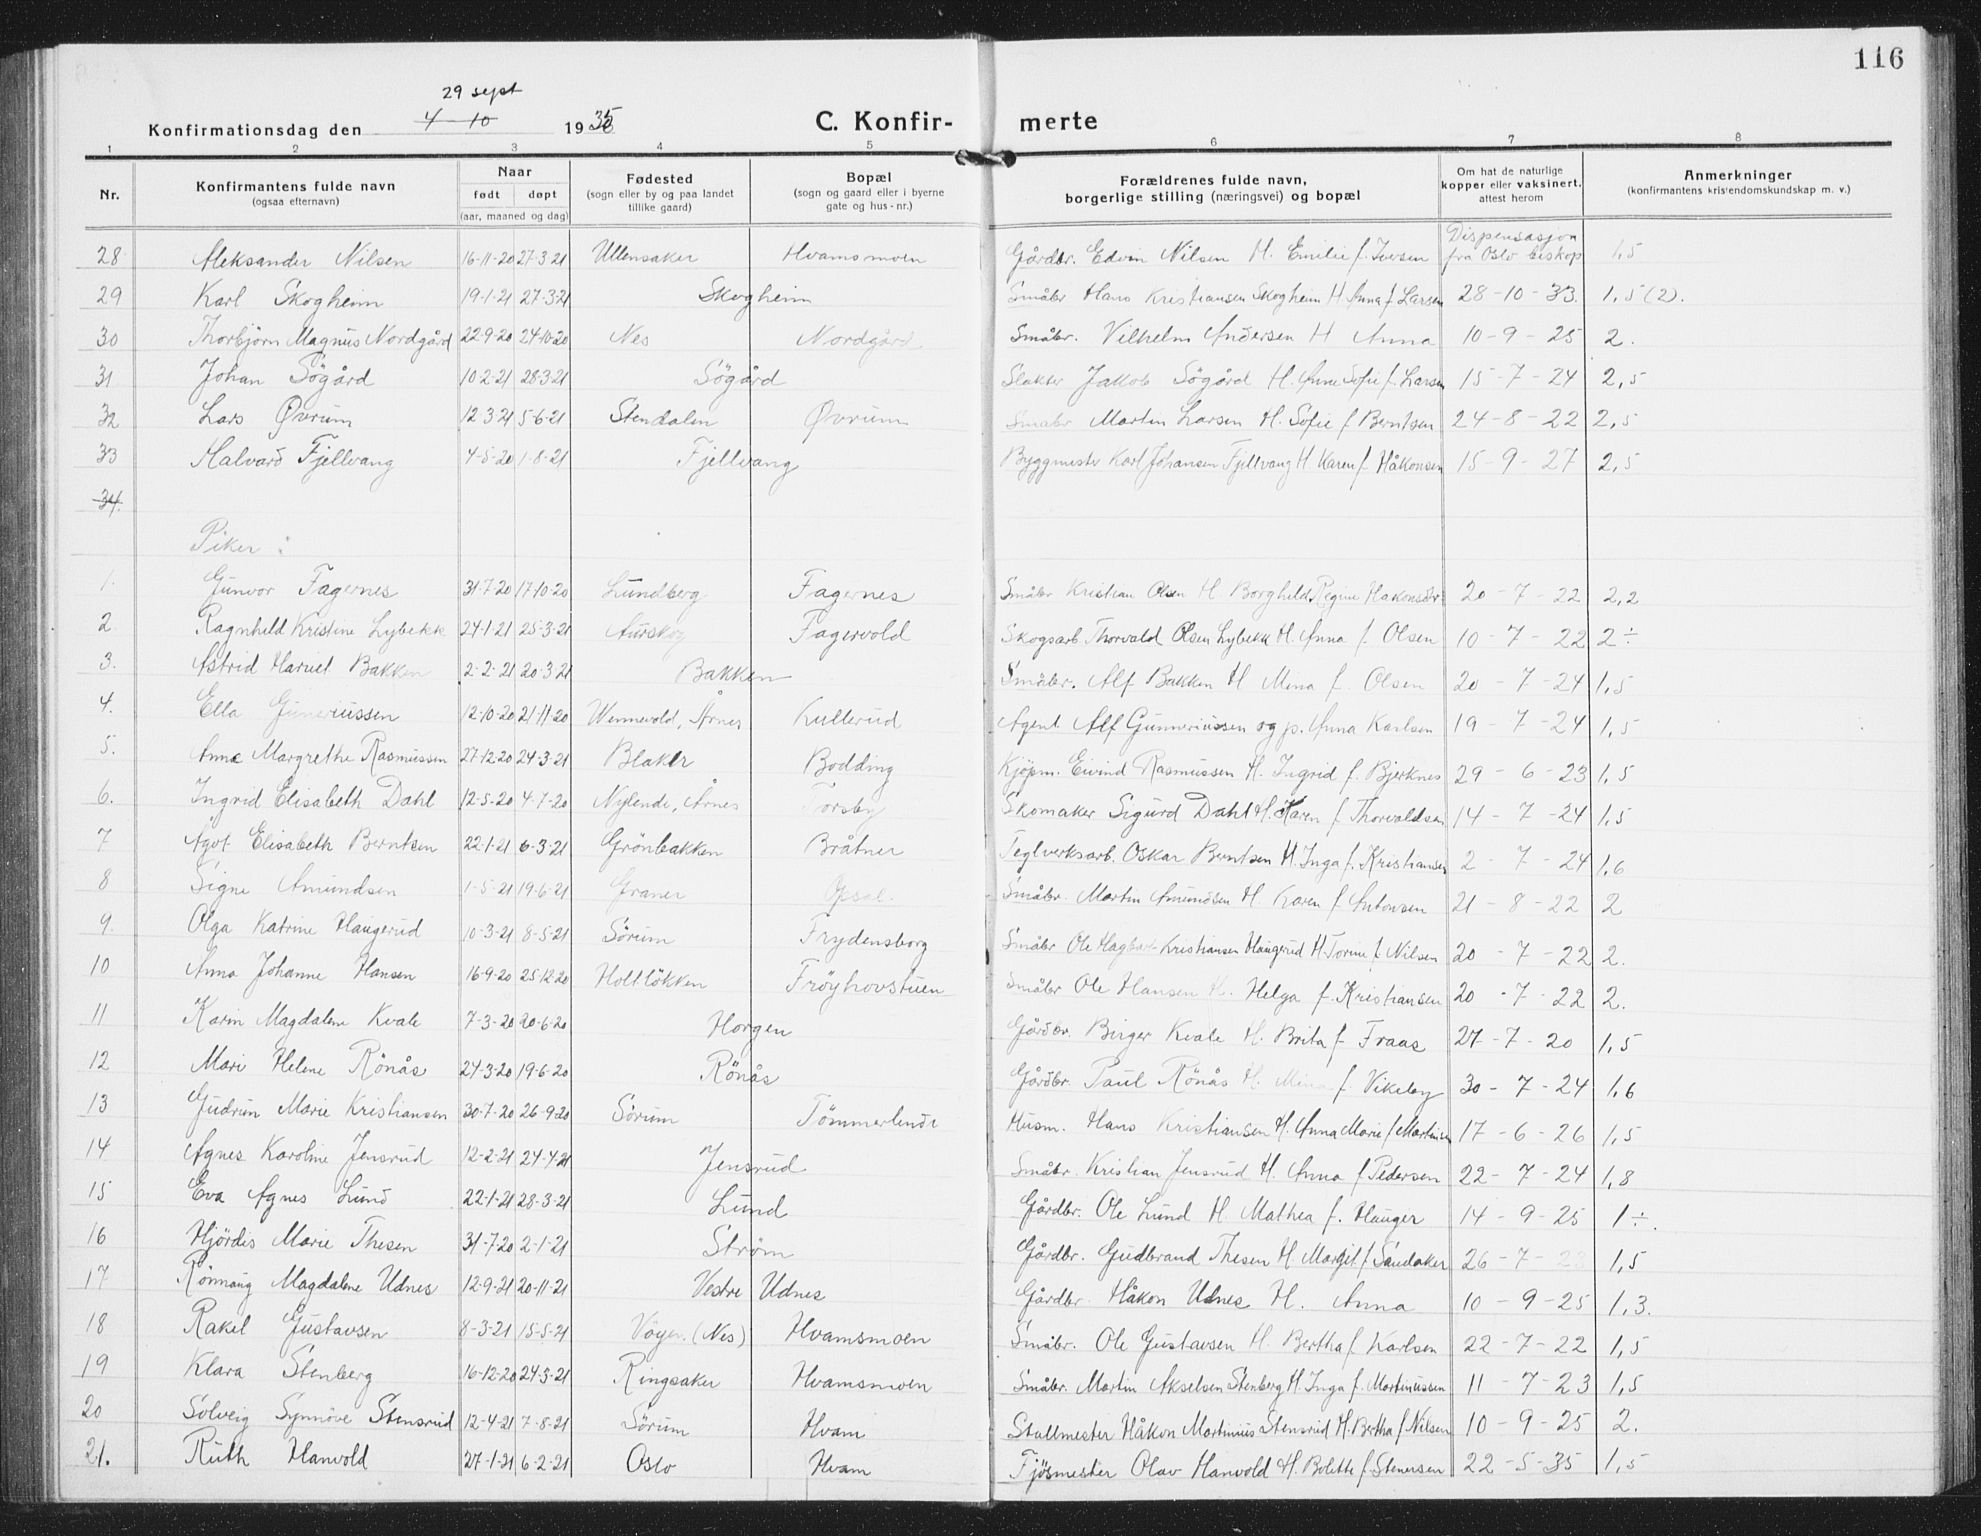 116
29 sept
Konfirmationsdag den 4 - 10 1935
C. Konfir- merte
1 2 3 4 5 6 7 8
Nr. Konfirmantens fulde navn (ogsaa efternavn) Naar født døpt (aar, maaned og dag) Fødested (sogn eller by og paa landet tillike gaard) Bopæl (sogn og gaard eller i byerne gate og hus-nr.) Forældrenes fulde navn, borgerlige stilling (næringsvei) og bopæl Om hat de naturlige kopper eller vaksinert, attest herom Anmerkninger (konfirmantens kristendomskundskap m. v.)
28 Aleksander Nilsen 16-11-20 27-3-21 Ullensaker Hvamsmoen Gårdbr. Edvin Nilsen H. Emilie f. Iversen Dispensasjon fra Oslo biskop 1,5
29 Karl Skogheim 19-1-21 27-3-21 Skogheim Småbr Hans Kristiansen Skogheim H Anna f. Larsen 28-10-33. 1,5 (2).
30 Thorbjørn Magnus Nordgård 22-9-20 24-10-20 Nes Nordgård Småbr. Vilhelm Andersen H Anna 10-9-25 2.
31 Johan Sögård 10-2-21 28-3-21 Sögård Slakter Jakob Sögård H. Anne Sofie f. Larsen 15-7-24 2,5
32 Lars Øvrum 12-3-21 5-6-21 Stendalen Øvrum Småbr Martin Larsen H. Sofie f Berntsen 24-8-22 2,5
33 Halvard Fjellvang 4-5-20 1-8-21 Fjellvang Byggmester Karl Johansen Fjellvang H Karen f. Håkonsen 15-9-27 2,5
34.
Piker :
1. Gunvor Fagernes 31-7-20 17-10-20 Lundberg Fagernes Småbr Kristian Olsen H. Borghild Regine Hakonsdtr 20-7-22 2,2
2. Ragnhild Kristine Lybekk 24-1-21 25-3-21 Aurskog Fagervold Skogsarb Thorvald Olsen Lybekk H. Anna f. Olsen 10-7-22 2÷
3. Astrid Harriet Bakken 2-2-21 20-3-21 Bakken Småbr. Alf Bakken H Mina f. Olsen 20-7-24 1,5
4. Ella Guneriussen 12-10-20 21-11-20 Wennevold, Årnes Kullerud Agent Alf Gunneriussen og p. Anna Karlsen 19-7-24 1,5
5. Anne Margrethe Rasmussen 27-12-20 24-3-21 Blaker Bodding Kjöpm. Eivind Rasmussen H. Ingrid f. Bjerknes 29-6-23 1,5
6. Ingrid Elisabeth Dahl 12-5-20 4-7-20 Nylende, Årnes Torsby Skomaker Sigurd Dahl H. Karen f Thorvaldsen 14-7-24 1,5
7 Agot Elisabeth Berntsen 22-1-21 6-3-21 Grönbakken Bråtner Teglverksarb. Oskar Berntsen H. Inga f. Kristiansen 2-7-24 1,6
8 Signe Amundsen 1-5-21 19-6-21 Graner Opsal Småbr. Martin Amundsen H. Karen f Antonsen 21-8-22 2
9. Olga Katrine Haugerud 10-3-21 8-5-21 Sörum Frydensborg Småbr Ole Hagbart Kristiansen Haugerud H Torine f. Nilsen 20-7-22 2.
10 Anna Johanne Hansen 16-9-20 25-12-20 Holtlökken Fröyhovstuen Småbr Ole Hansen H. Helga f. Kristiansen 20-7-22 2.
11 Karin Magdalene Kvale 7-3-20 20-6-20 Horgen Gårdbr. Birger Kvale H. Brita f. Fraas 27-7-20 1,5
12 Mari Helene Rönås 24-3-20 19-6-20 Rönås Gårdbr. Paul Rönås H. Mina f. Vikeby 30-7-24 1,6
13 Gudrun Marie Kristiansen 30-7-20 26-9-20 Sörum Tömmerlende Husm. Hans Kristiansen H. Anna Marie f Martinsen 17-6-26 1,5
14 Agnes Karoline Jensrud 12-2-21 24-4-21 Jensrud Småbr. Kristian Jensrud H. Anna f Pedersen 22-7-24 1,8
15 Eva Agnes Lund 22-1-21 28-3-21 Lund Gårdbr. Ole Lund H. Mathea f. Hauger 14-9-25 1÷.
16 Hjördis Marie Thesen 31-7-20 2-1-21 Ström Gårdbr. Gudbrand Thesen H Margit f Sandaker 26-7-23 1,5
17 Rönnaug Magdalene Udnes 12-9-21 20-11-21 Vestre Udnes Gårdbr Håkon Udnes H. Anna 10-9-25 1,3.
18 Rakel Gustavsen 8-3-21 15-5-21 Vöyen (Nes) Hvamsmoen Småbr. Ole Gustavsen H. Bertha f Karlsen 22-7-22 1,5
19 Klara Stenberg 16-12-20 24-3-21 Ringsaker Hvamsmoen Småbr. Martin Akselsen Stenberg H. Inga f. Martinussen 11-7-23 1,5
20 Solveig Synnöve Stensrud 12-4-21 7-8-21 Sörum Hvam Stallmester Håkon Martinius Stensrud H. Bertha f Nilsen 10-9-25 2.
21. Ruth Hanvold 27-1-21 6-2-21 Oslo Hvam Fjösmester Olav Hanvold H. Bolette f. Stenersen 22-5-35 1,5